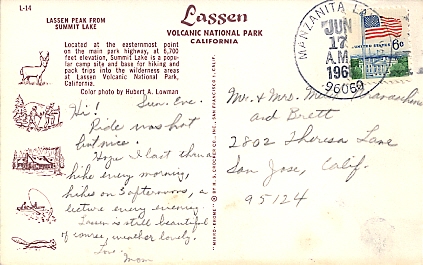 L-14
LASSEN PEAK FROM
SUMMIT LAKE
Lassen
VOLCANIC NATIONAL PARK
CALIFORNIA
Located at the easternmost point
on the main park highway, at 6,700
feet elevation, Summit Lake is a popu-
lar camp site and base for hiking and
pack trips into the wilderness areas
at Lassen Volcanic National Park,
California.
Color photo by Hubert A. Lowman
Sun. Eve.
Hi!
Ride was hot
but nice.
hike every morning,
hikes on 3 afternoons, a
lecture every evening.
Lassen is still beautiful
of course, weather lovely.
Love
Mom
MANZANITA
JUN
17
A.M.
196
96060
UNITED STATES
6c
Mr. & Mrs.
and Brett
2802 Theresa Lane
San Jose, Calif.
95124